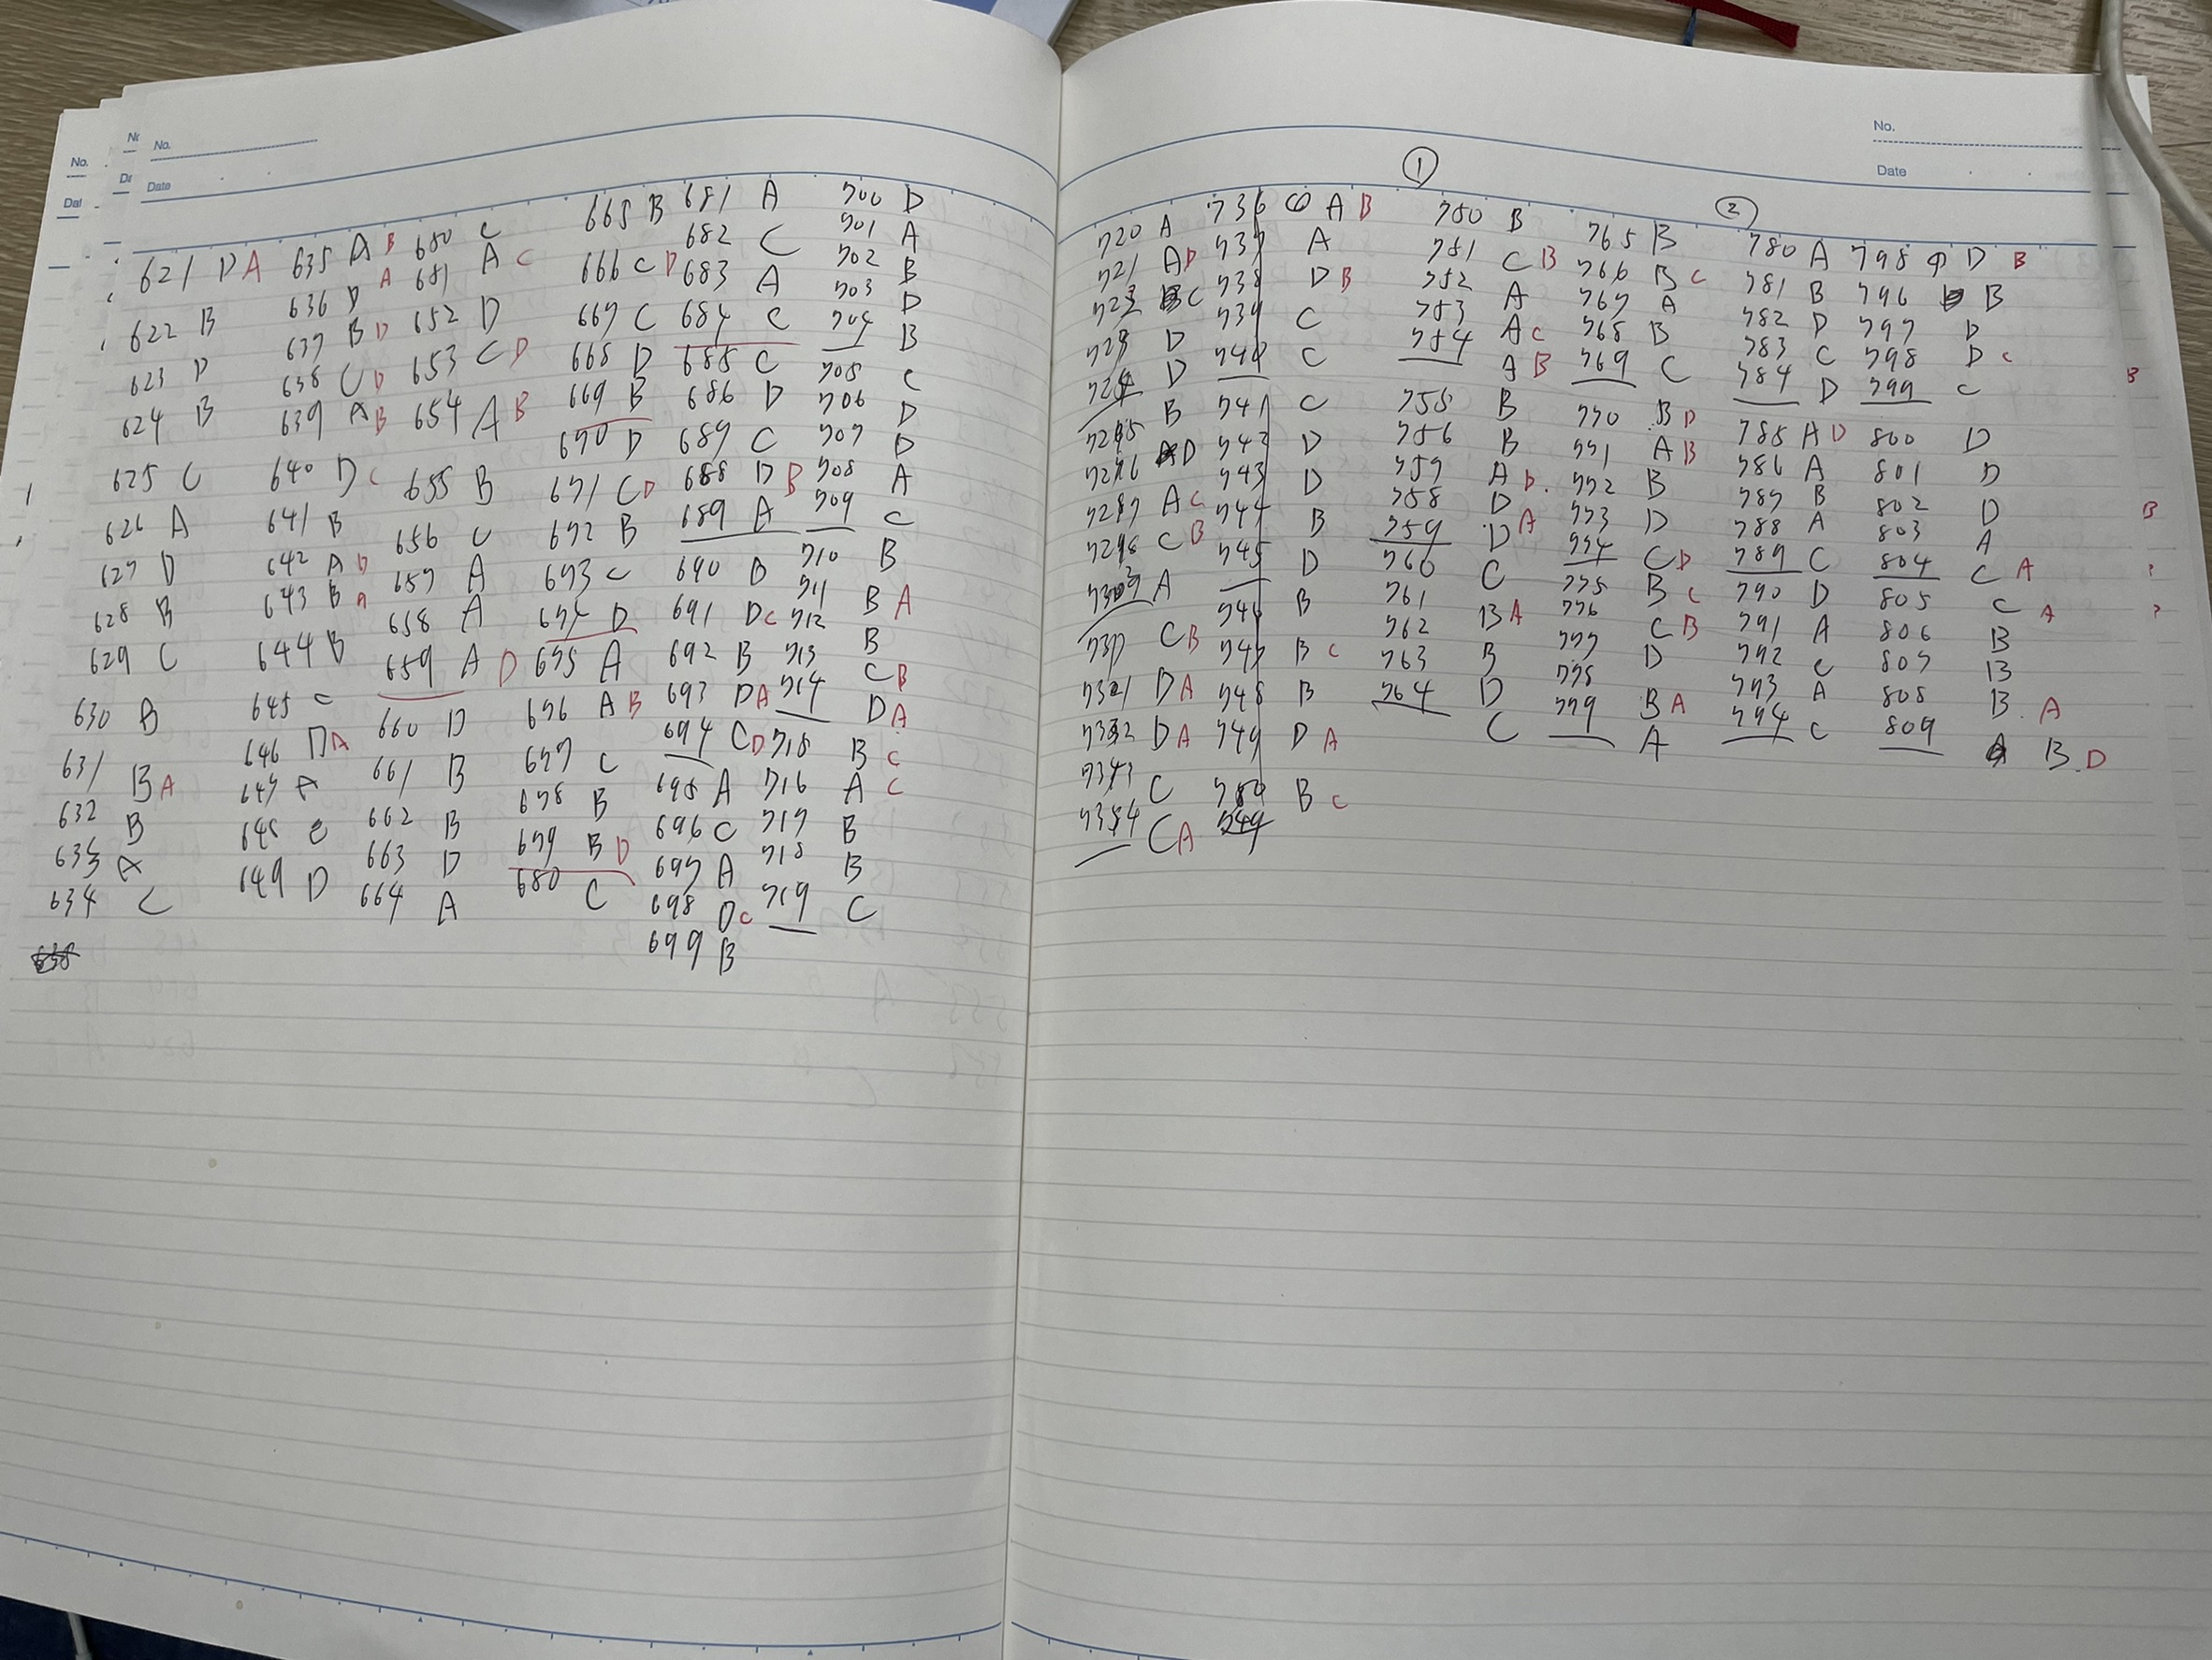 No.
Date
621 D A
622 B
623 D
624 B
625 C
626 A
627 D
628 B
629 C
630 B
631 B A
632 B
633 A
634 C
635 A B
636 D A
637 B D
638 C D
639 A B
640 D C
641 B
642 A D
643 B A
644 B
645 C
646 D A
647 A
648 C
649 D
680 C
681 A C
652 D
653 C D
654 A B
655 B
656 C
657 A
658 A
659 A D
660 D
661 B
662 B
663 D
664 A
665 B
666 C D
667 C
668 D
669 B
670 D
671 C D
672 B
673 C
674 D
675 A
676 A B
677 C
678 B
679 B D
680 C
681 A
682 C
683 A
684 C
685 C
686 D
687 C
688 D B
689 A
690 D
691 D C
692 B
693 D A
694 C D
695 A
696 C
697 A
698 D C
699 B
700 D
701 A
702 B
703 D
704 B
705 C
706 D
707 D
708 A
709 C
710 B
711 B A
712 B
713 C B
714 D A
715 B C
716 A C
717 B
718 B
719 C
No.
Date
①
②
720 A
721 A D
C
D
D
B
D
A C
C B
A
C B
D A
D A
C
C A
736 A B
737 A
738 D B
739 C
740 C
741 C
742 D
743 D
744 B
745 D
746 B
747 B C
748 B
749 D A
750 B C
750 B
751 C B
752 A
753 A C
754 A B
755 B
756 B
757 A D
758 D A
759 D
760 C
761 B A
762 B
763 D
764 C
765 B
766 B C
767 A
768 B
769 C
770 B D
771 A B
772 B
773 D
774 C D
775 B C
776 C B
777 D
778 B A
779 A
780 A
781 B
782 D
783 C
784 D
785 A D
786 A
787 B
788 A
789 C
790 D
791 A
792 C
793 A
794 C
795 D B
796 B
797 D
798 D C
799 C
800 D
801 D
802 D
803 A
804 C A
805 C A
806 B
807 B
808 B A
809 B D
B
B
?
?